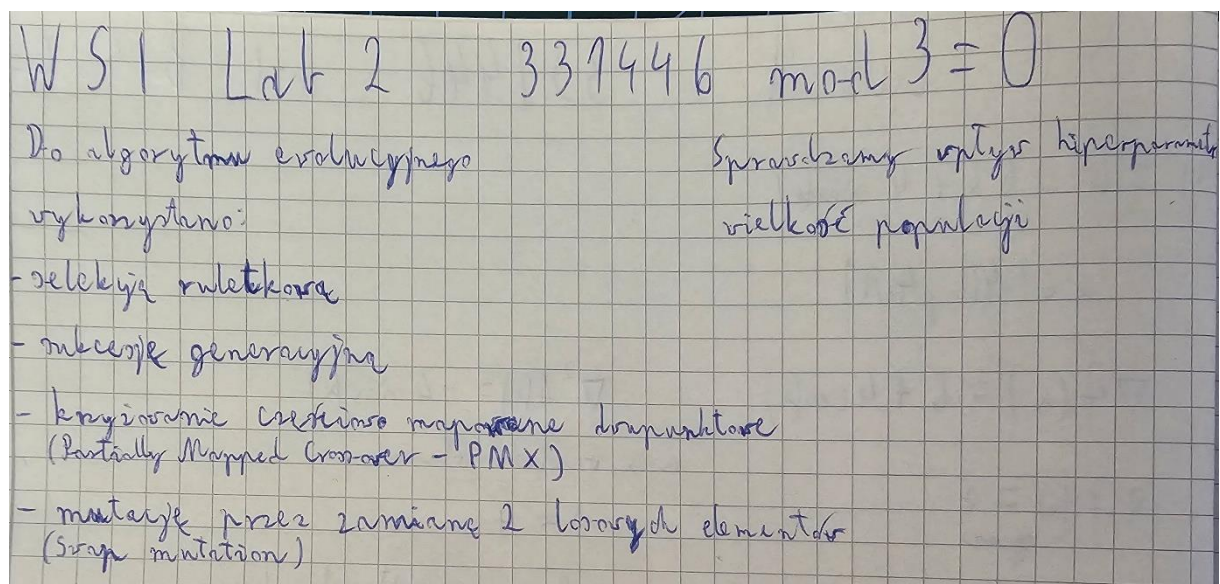 WSI Lab 2 331446 mod 3 = 0
Do algorytmu ewolucyjnego
wykorzystano:
- selekcję ruletkową
- sukcesję generacyjną
- krzyżowanie częściowo mapowane dwupunktowe
(Partially Mapped Cross-over - PMX)
- mutację przez zamianę 2 losowych elementów
(Swap mutation)
Sprawdzamy wpływ hiperparametr
wielkość populacji